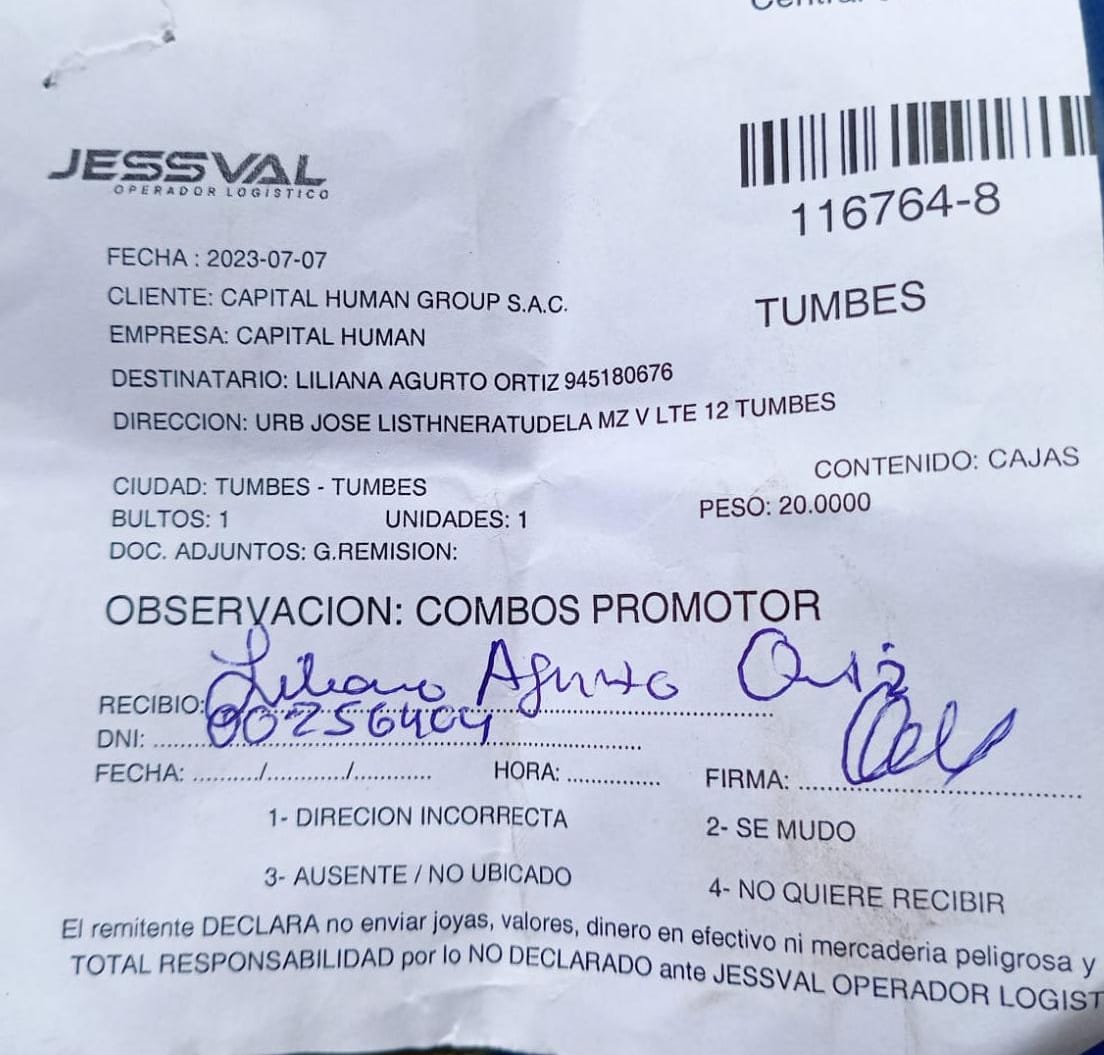 Central
116764-8
JESSVAL
OPERADOR LOGÍSTICO
FECHA : 2023-07-07
CLIENTE: CAPITAL HUMAN GROUP S.A.C.
TUMBES
EMPRESA: CAPITAL HUMAN
DESTINATARIO: LILIANA AGURTO ORTIZ 945180676
DIRECCION: URB JOSE LISTHNERATUDELA MZ V LTE 12 TUMBES
CONTENIDO: CAJAS
CIUDAD: TUMBES - TUMBES
BULTOS: 1 UNIDADES: 1 PESO: 20.0000
DOC. ADJUNTOS: G.REMISION:
OBSERVACION: COMBOS PROMOTOR
RECIBIO: Liliana Agurto Ortiz
DNI: 00256404
FECHA: ........../............/............ HORA: ............... FIRMA: ...............
1- DIRECION INCORRECTA 2- SE MUDO
3- AUSENTE / NO UBICADO 4- NO QUIERE RECIBIR
El remitente DECLARA no enviar joyas, valores, dinero en efectivo ni mercaderia peligrosa y
TOTAL RESPONSABILIDAD por lo NO DECLARADO ante JESSVAL OPERADOR LOGIST